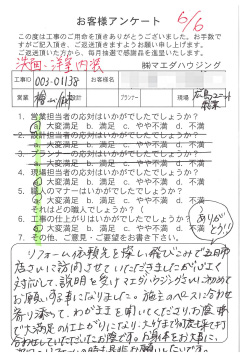 お客様アンケート
6/6
この度は工事のご用命を頂きありがとうございました。お手数で
すがご記入頂き、ご返送頂きますようお願い申し上げます。
ご返送頂いた方から、毎月抽選で感謝品を進呈いたします。
洗面・洋室内装
㈱マエダハウジング
工事ID 003-01138 お客様名
営業 設計 プランナー 現場
1. 営業担当者の対応はいかがでしたでしょうか?
a 大変満足 b. 満足 c. やや不満 d. 不満
2. 設計担当者の対応はいかがでしたでしょうか?
a. 大変満足 b. 満足 c. やや不満 d. 不満
3. プランナーの対応はいかがでしたでしょうか?
a. 大変満足 b. 満足 c. やや不満 d. 不満
4. 現場担当者の対応はいかがでしたでしょうか?
a 大変満足 b. 満足 c. やや不満 d. 不満
5. 職人のマナーはいかがでしたでしょうか?
a 大変満足 b. 満足 c. やや不満 d. 不満
それはどの職人でしょうか?
6. 工事の仕上がりはいかがでしたでしょうか?
a 大変満足 b. 満足 c. やや不満 d. 不満
7. その他、ご意見・ご要望をお書き下さい。
ありがとう!!
リフォーム依頼先を探し飛びこみで五日市
店さんに訪問させていただきましたが
対応して、説明を受けマエダハウジングさんに決めて
お願いする事になりました。施主のペースに合わせ
寄り添って、わがままを聞いてくださり、お陰
で大満足の仕上がりになり
合わせていただいたお陰です。お身体を大事に、